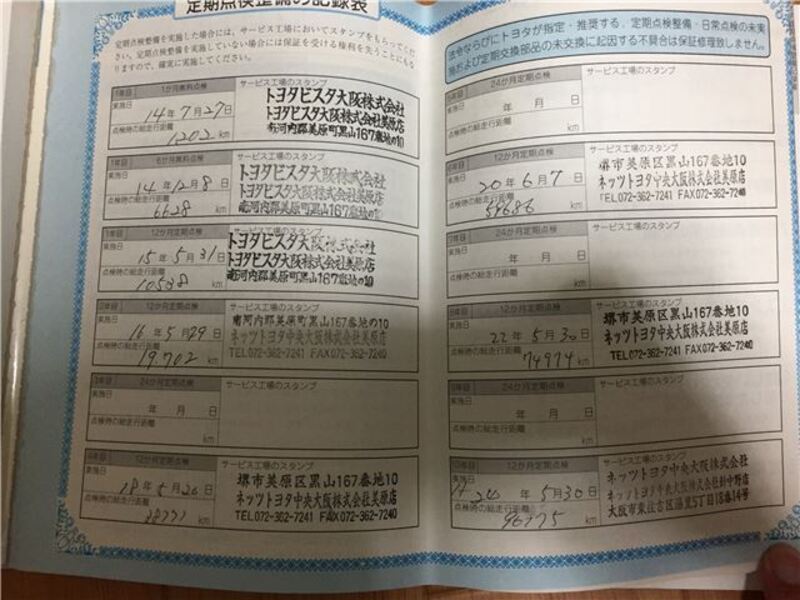 定期点検整備の記録表
定期点検整備を実施した場合には、サービス工場においてスタンプをもらってください。定期点検整備を実施していない場合には保証を受ける権利を失うことにもなりますので、確実に実施してください。
1か月無料点検
サービス工場のスタンプ
実施日
14年7月27日
点検時の総走行距離
1202 km
トヨタビスタ大阪株式会社
トヨタビスタ大阪株式会社美原店
南河内郡美原町黒山167番地の10
1年目 6か月無料点検
サービス工場のスタンプ
実施日
14年12月8日
点検時の総走行距離
6628 km
トヨタビスタ大阪株式会社
トヨタビスタ大阪株式会社美原店
南河内郡美原町黒山167番地の10
1年目 12か月定期点検
サービス工場のスタンプ
実施日
15年5月31日
点検時の総走行距離
10538 km
トヨタビスタ大阪株式会社
トヨタビスタ大阪株式会社美原店
南河内郡美原町黒山167番地の10
2年目 12か月定期点検
サービス工場のスタンプ
実施日
16年5月29日
点検時の総走行距離
19702 km
南河内郡美原町黒山167番地の10
ネッツトヨタ中央大阪株式会社美原店
TEL072-362-7241 FAX072-362-7240
3年目 24か月定期点検
サービス工場のスタンプ
実施日
年 月 日
点検時の総走行距離
km
4年目 12か月定期点検
サービス工場のスタンプ
実施日
18年5月26日
点検時の総走行距離
km
堺市美原区黒山167番地10
ネッツトヨタ中央大阪株式会社美原店
TEL072-362-7241 FAX072-362-7240
法令ならびにトヨタが指定・推奨する、定期点検整備・日常点検の未実施および定期交換部品の未交換に起因する不具合は保証修理致しません。
24か月定期点検
サービス工場のスタンプ
実施日
年 月 日
点検時の総走行距離
km
12か月定期点検
サービス工場のスタンプ
実施日
20年6月7日
点検時の総走行距離
km
堺市美原区黒山167番地10
ネッツトヨタ中央大阪株式会社美原店
TEL072-362-7241 FAX072-362-7240
24か月定期点検
サービス工場のスタンプ
実施日
年 月 日
点検時の総走行距離
km
12か月定期点検
サービス工場のスタンプ
実施日
22年5月30日
点検時の総走行距離
74974 km
堺市美原区黒山167番地10
ネッツトヨタ中央大阪株式会社美原店
TEL072-362-7241 FAX072-362-7240
24か月定期点検
サービス工場のスタンプ
実施日
年 月 日
点検時の総走行距離
km
10年目 12か月定期点検
サービス工場のスタンプ
実施日
24年5月30日
点検時の総走行距離
96775 km
ネッツトヨタ中央大阪株式会社
ネッツトヨタ中央大阪株式会社針中野店
大阪市東住吉区湯里5丁目18番14号